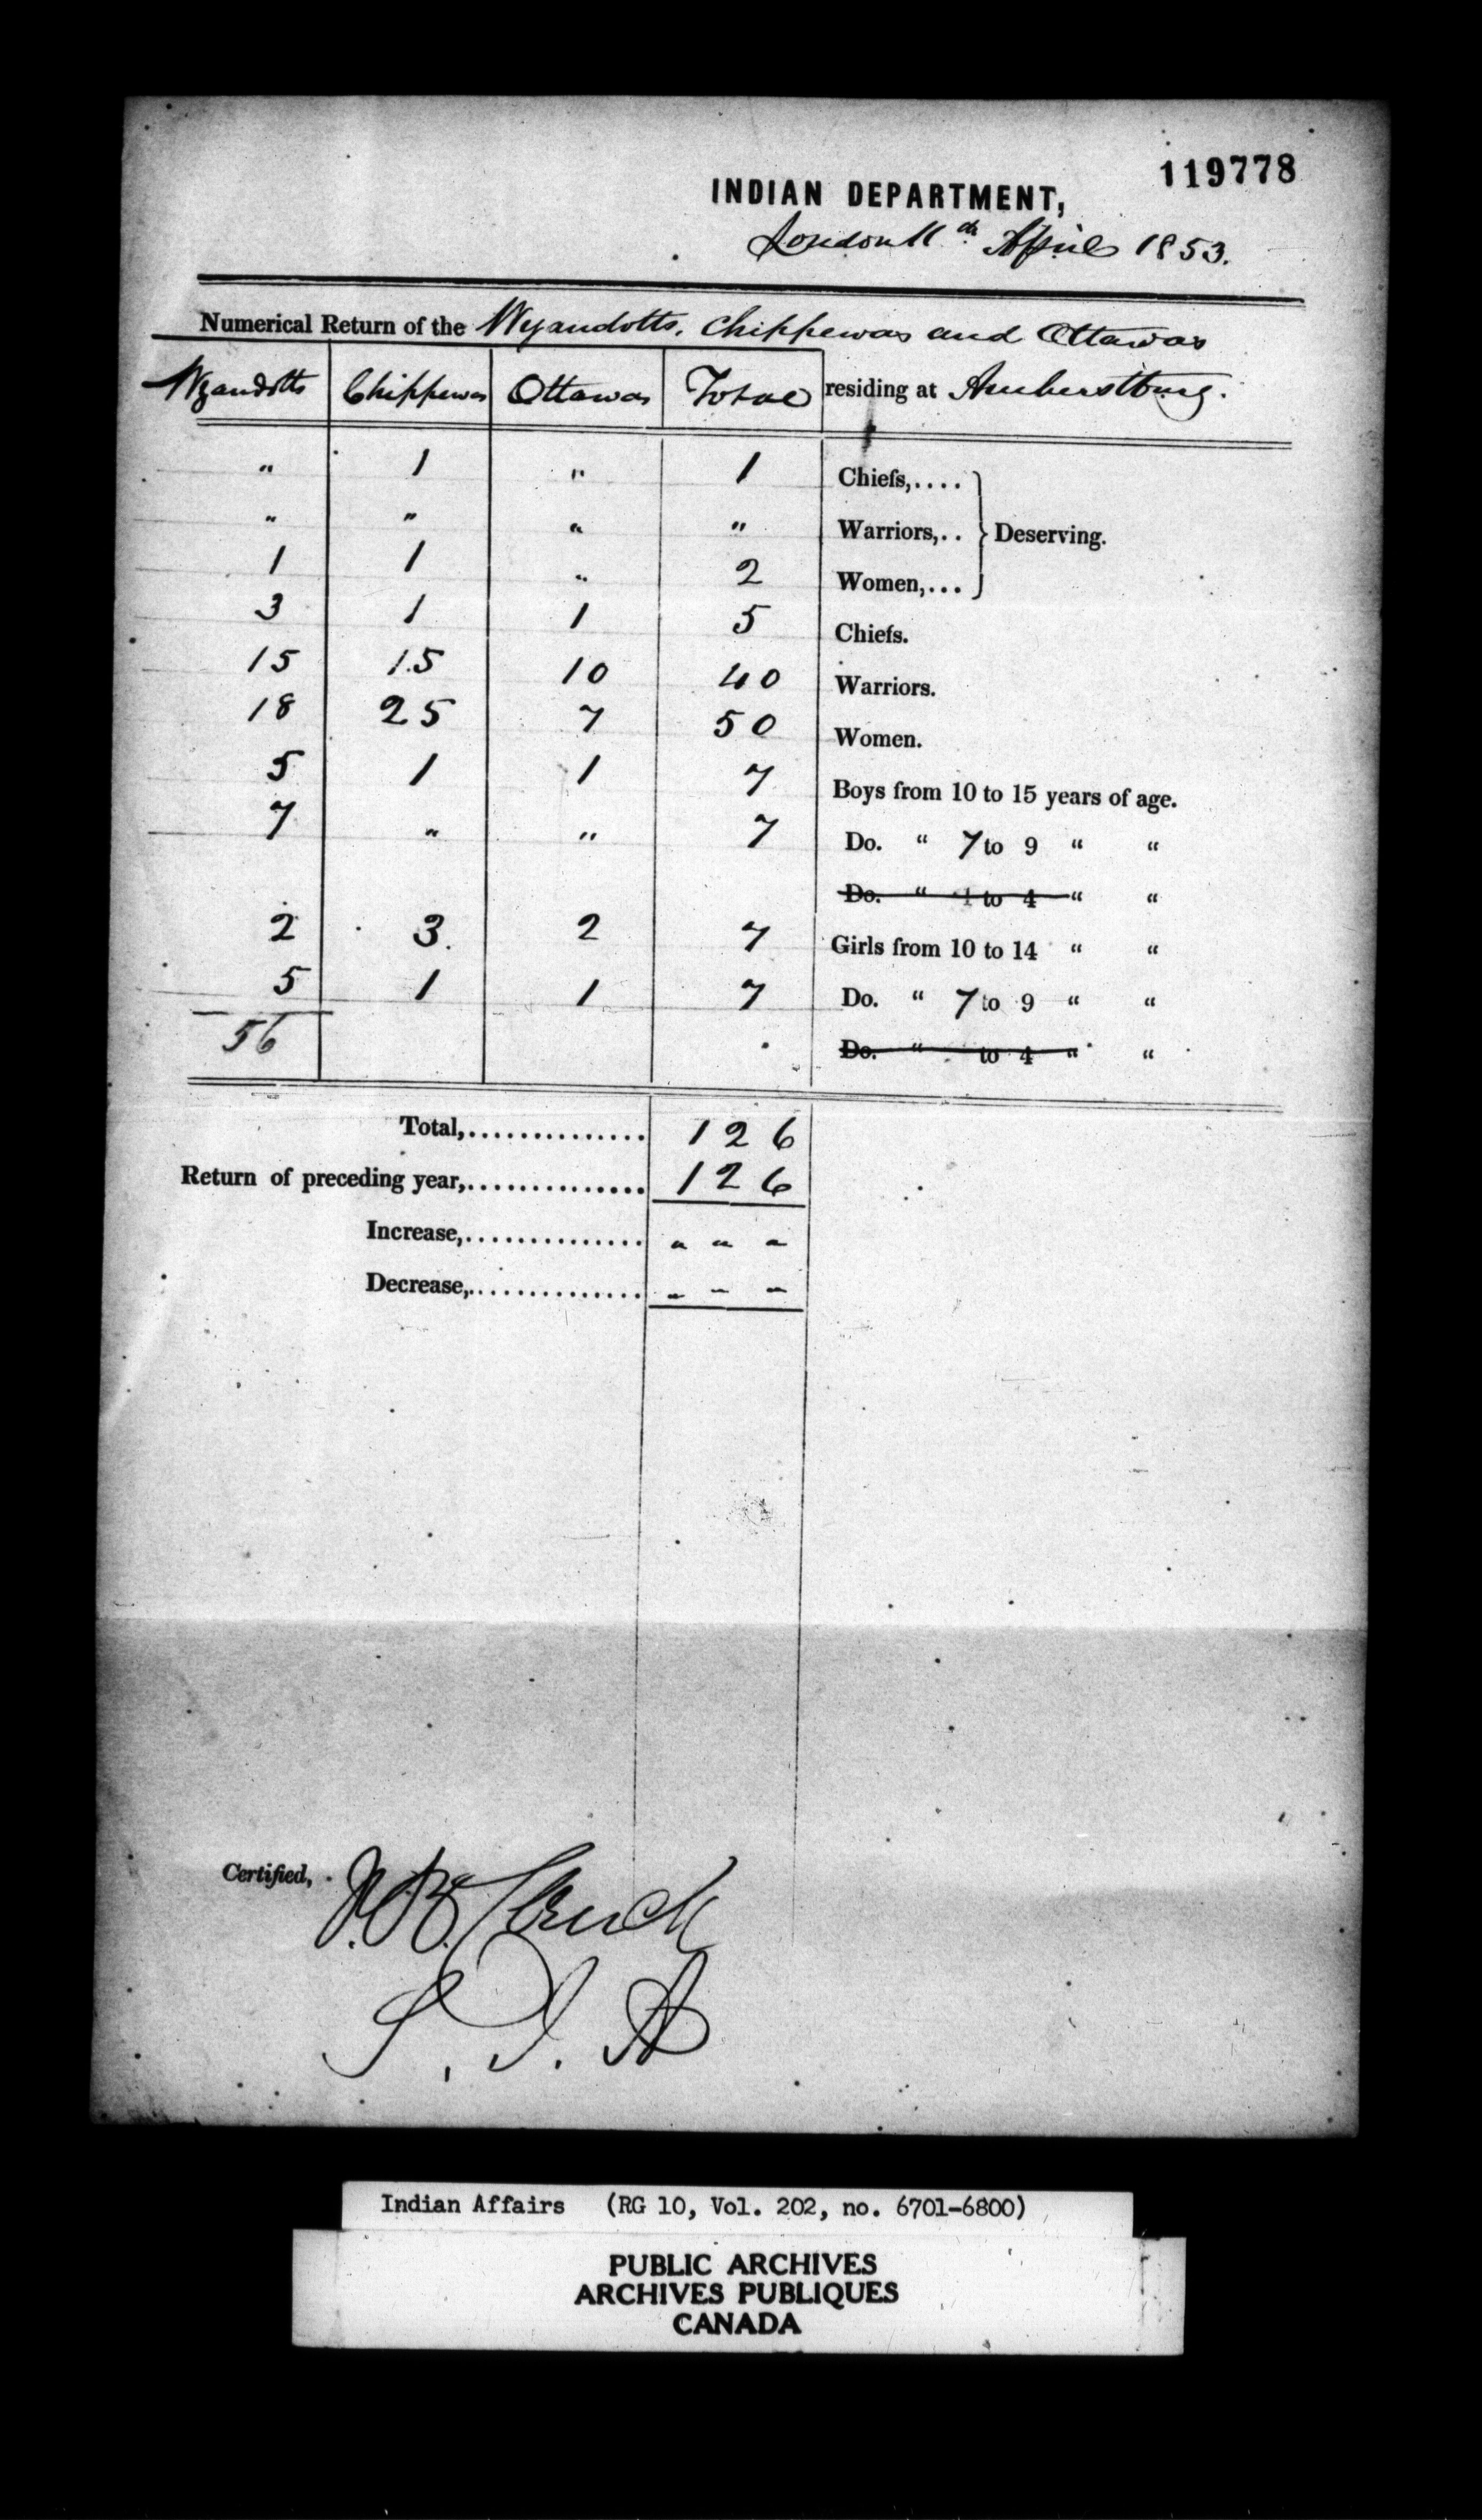 119778
INDIAN DEPARTMENT,
London 11th April 1853.
Numerical Return of the Wyandotts, Chippewas and Ottawas
Wyandotts Chippewas Ottawas Total residing at Amherstburg.
" 1 " 1 Chiefs,....
" " " " Warriors,.. } Deserving.
1 1 " 2 Women,...
3 1 1 5 Chiefs.
15 15 10 40 Warriors.
18 25 7 50 Women.
5 1 1 7 Boys from 10 to 15 years of age.
7 " " 7 Do. " 7 to 9 " "
Do. " 1 to 4 " "
2 3. 2 7 Girls from 10 to 14 " "
5 1 1 7 Do. " 7 to 9 " "
56 Do. " to 4 " "
Total,.............. 126
Return of preceding year,.............. 126
Increase,.............. " " "
Decrease,.............. " " "
Certified,
S. I. A
Indian Affairs (RG 10, Vol. 202, no. 6701-6800)
PUBLIC ARCHIVES
ARCHIVES PUBLIQUES
CANADA